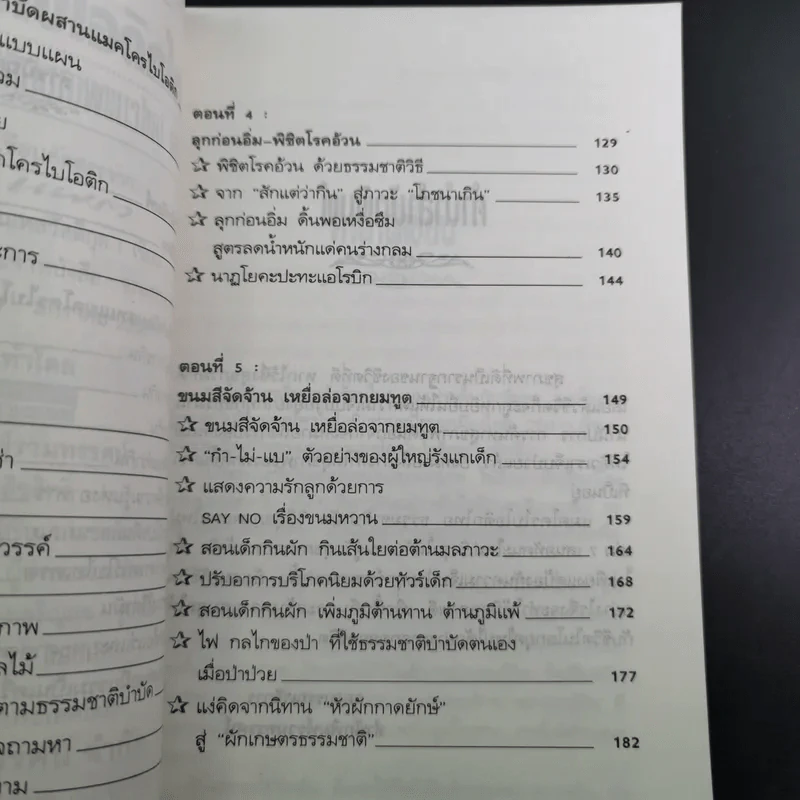 าบัดผสานแมคโครไบโอติก
แบบแผน
วม
ย
กโครไบโอติก
ะการ
ร่า
วรรค์
ภาพ
ลไม้
ตามธรรมชาติบำบัด
จถามหา
าม
ตอนที่ 4 :
ลุกก่อนอิ่ม-พิชิตโรคอ้วน 129
☆ พิชิตโรคอ้วน ด้วยธรรมชาติวิธี 130
☆ จาก "สักแต่ว่ากิน" สู่ภาวะ "โภชนาเกิน" 135
☆ ลุกก่อนอิ่ม ดิ้นพอเหงื่อซึม
สูตรลดน้ำหนักแด่คนร่างกลม 140
☆ นาฏโยคะปะทะแอโรบิก 144
ตอนที่ 5 :
ขนมสีจัดจ้าน เหยื่อล่อจากยมทูต 149
☆ ขนมสีจัดจ้าน เหยื่อล่อจากยมทูต 150
☆ "กำ-ไม่-แบ" ตัวอย่างของผู้ใหญ่รังแกเด็ก 154
☆ แสดงความรักลูกด้วยการ
SAY NO เรื่องขนมหวาน 159
☆ สอนเด็กกินผัก กินเส้นใยต่อต้านมลภาวะ 164
☆ ปรับอาการบริโภคนิยมด้วยทัวร์เด็ก 168
☆ สอนเด็กกินผัก เพิ่มภูมิต้านทาน ต้านภูมิแพ้ 172
☆ ไฟ กลไกของป่า ที่ใช้ธรรมชาติบำบัดตนเอง
เมื่อป่าป่วย 177
☆ แง่คิดจากนิทาน "หัวผักกาดยักษ์"
สู่ "ผักเกษตรธรรมชาติ" 182